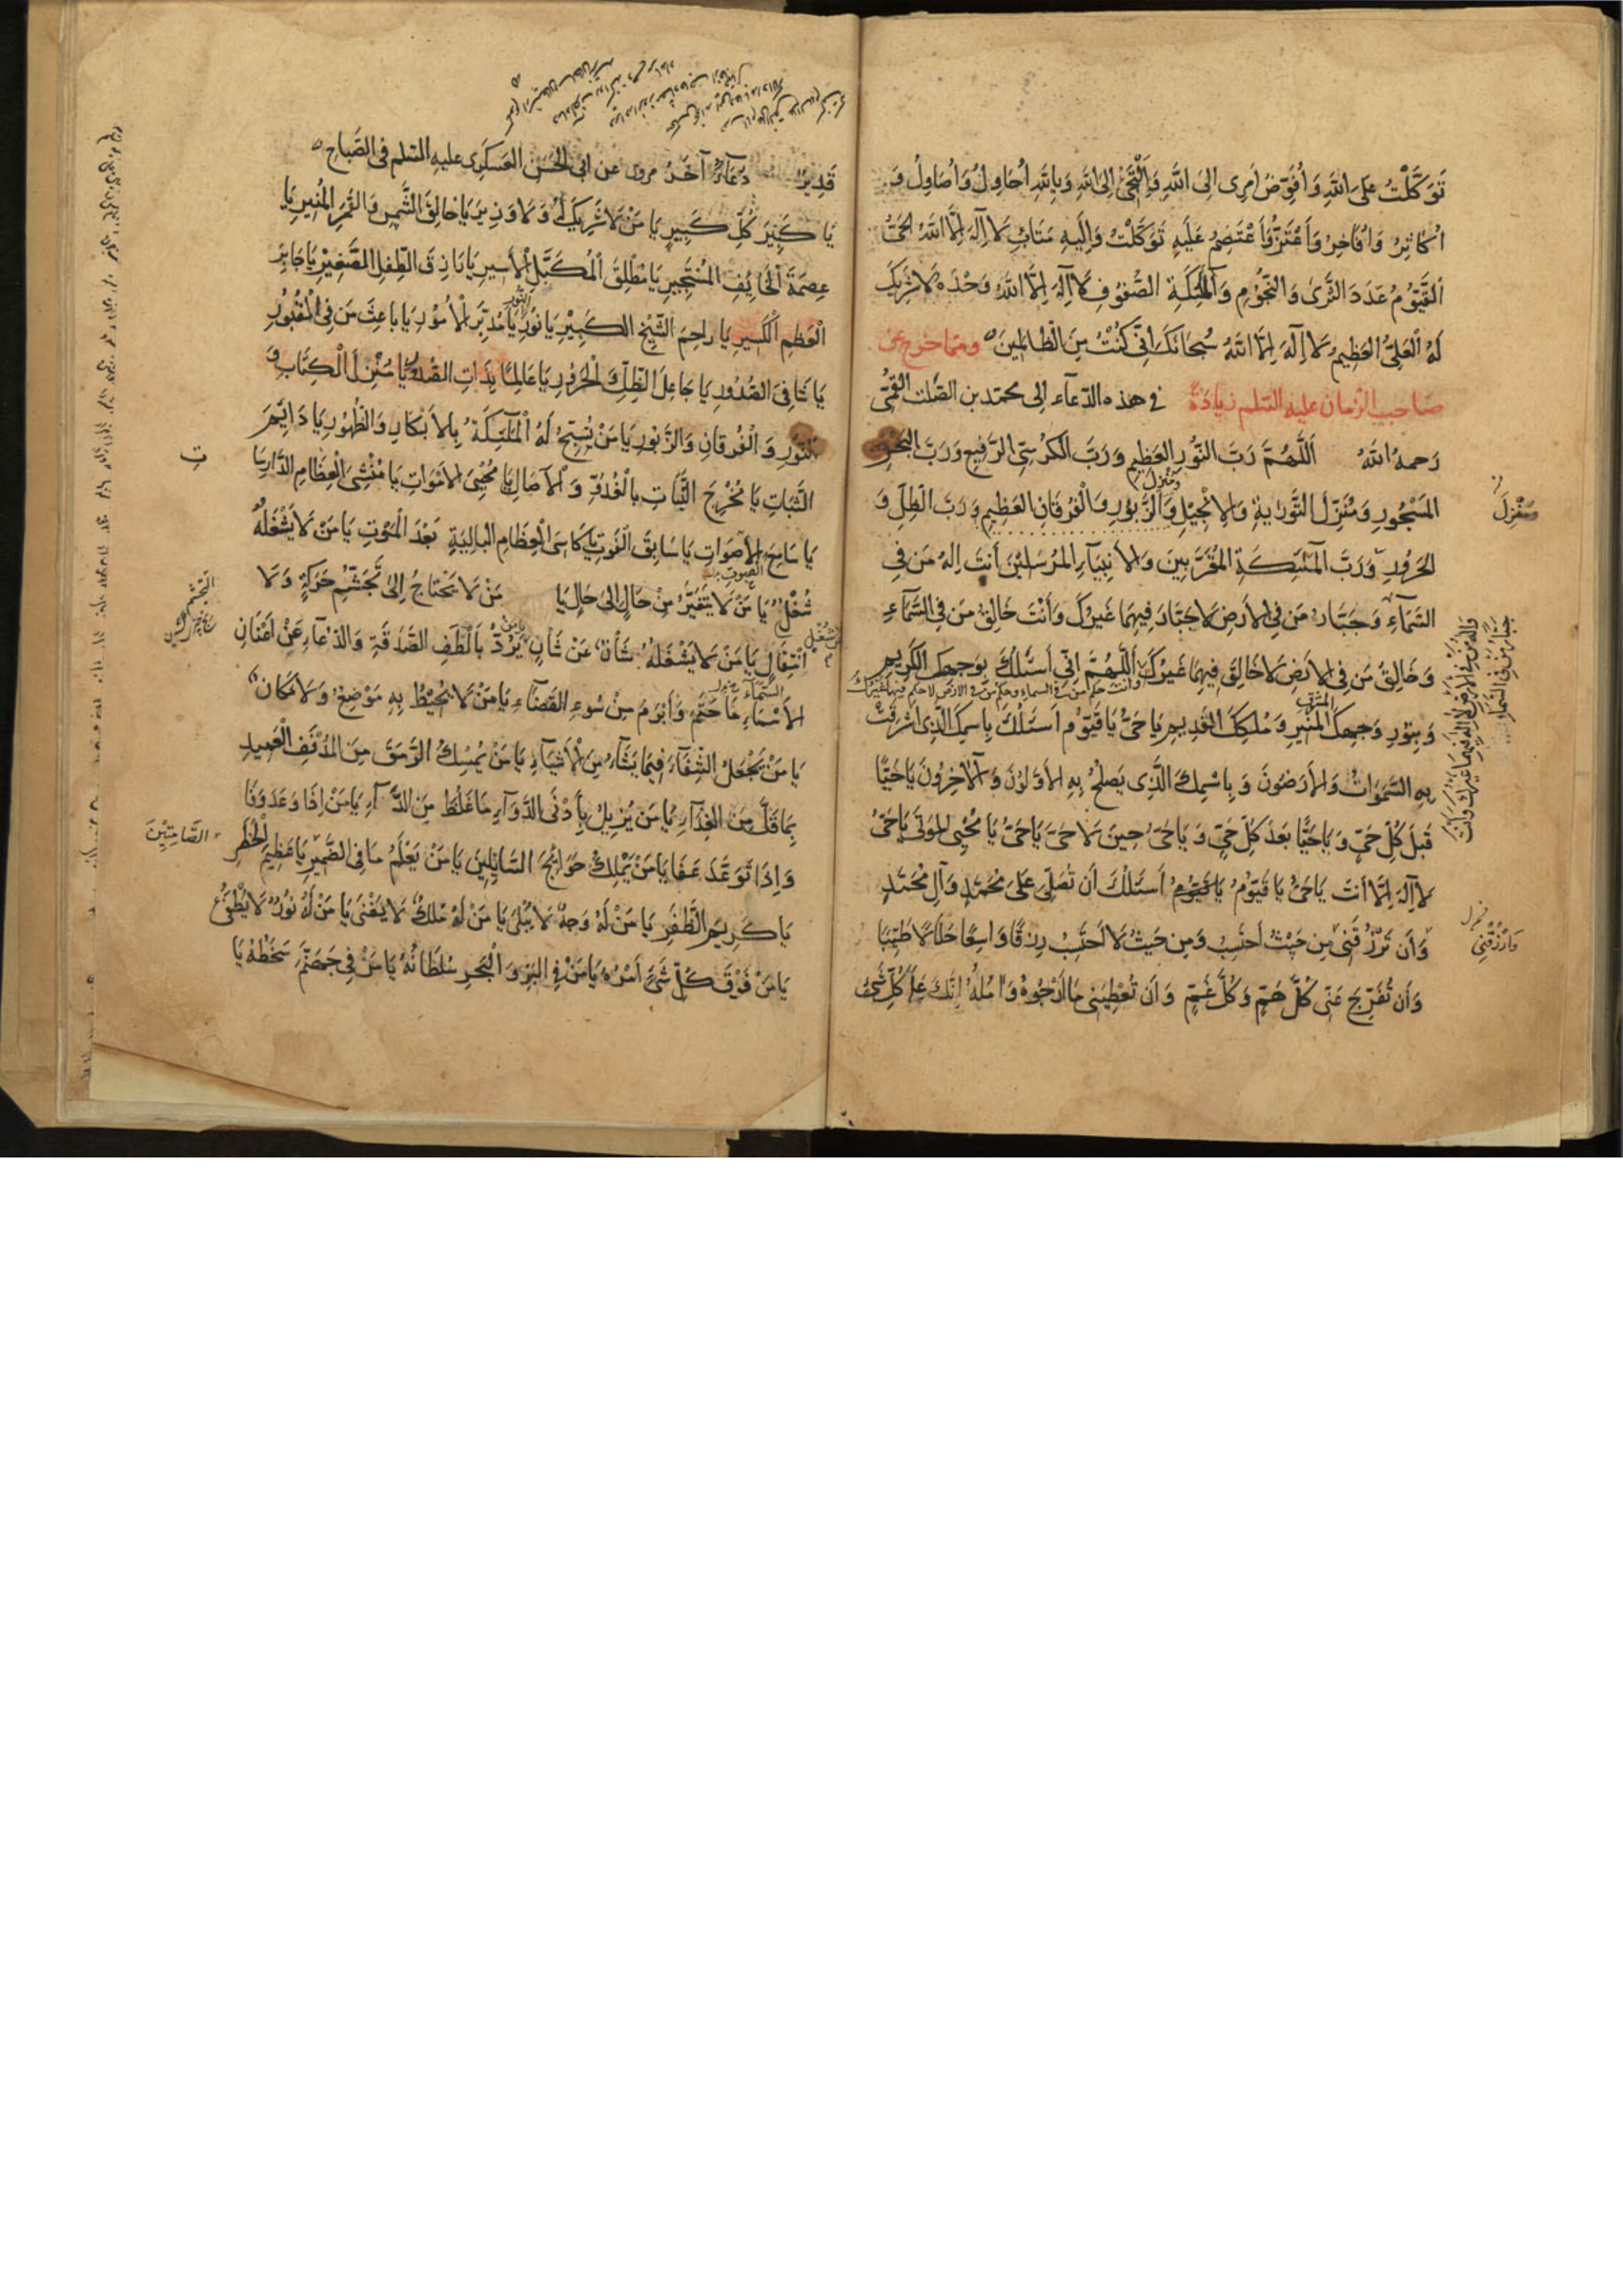 تَوَكَّلْتُ عَلَى اللّٰهِ وَأُفَوِّضُ أَمرِى اِلىَ اللّٰهِ وَاَلْتَجِئُ اِلىَ اللّٰهِ وَبِاللّٰهِ اُحَاوِلُ وَاُصَاوِلُ وَ
اُكَاثِرُ وَاُفَاخِرُ وَأَعْتَزُّ وَأَعْتَصِمُ عَلَيهِ تَوَكَّلْتُ وَاِلَيهِ مَتَابِ لَا اِلٰهَ اِلَّا اللّٰهُ الْحَىُّ
القَيُّومُ عَدَدَ الثَّرىٰ وَالنُّجُومِ وَالْمَلٰئِكَةِ الصُّفُوفِ لَا اِلٰهَ اِلَّا اللّٰهُ وَحْدَهُ لَا شَرِيكَ
لَهُ العَلِىُّ العَظِيمُ لَا اِلٰهَ اِلَّا اللّٰهُ سُبحَانَكَ اِنّى كُنْتُ مِنَ الظَّالمِينَ ومما خرج عن
صاحب الزمان عليه السّلم زيادةً فى هذه الدّعاء الى محمّد بن الصَّلت القمّى
رَحمهُ اللّٰهُ اَللّٰهُمَّ رَبَّ النُّورِ العَظِيمِ وَرَبَّ الكُرْسِىِّ الرَّفِيعِ وَرَبَّ البَحْرِ
المَسْجُورِ وَمُنْزِلَ التَّوْرٰيةِ وَالاِنْجِيلِ وَالزَّبُورِ وَالْفُرقَانِ العَظِيمِ وَرَبَّ الظِّلِّ وَ
مُنْزِلَ
الحَرُورِ وَرَبَّ المَلٰئِكَةِ المُقَرَّبِينَ وَالاَنبِيَآءِ المُرْسَلِيْنَ اَنتَ اِلٰهُ مَن فِى
السَّمَآءِ وَجَبَّارُ مَن فِى الاَرضِ لَا جَبَّارَ فِيهِمَا غَيرُكَ وَاَنْتَ خَالِقُ مَن فِى السَّمَآءِ
وَخَالِقُ مَن فِى الاَرضِ لَا خَالِقَ فِيهِمَا غَيرُكَ اَللّٰهُمَّ اِنّى اَسئَلُكَ بِوَجهِكَ الكَرِيمِ
وانت حكم من فى السماء وحكم من فى الارض لا حكم فيهما غيرك
وَبِنُورِ وَجهِكَ المُنيرِ وَمُلكِكَ القَدِيمِ يَا حَىُّ يَا قَيُّومُ اَسئَلُكَ بِاسمِكَ الَّذِى اَشْرَقَتْ
بِهِ السَّمٰوَاتُ وَالاَرَضُونَ وَبِاسْمِكَ الَّذِى يَصلحُ بِهِ الاَوَّلُونَ وَالآخِرُونَ يَا حَيًّا
قَبلَ كُلِّ حَىٍّ وَيَا حَيًّا بَعدَ كُلِّ حَىٍّ وَيَا حَىُّ حِينَ لَا حَىَّ يَا حَىُّ يَا مُحْيِىَ المَوتىٰ يَا حَىُّ
لَا اِلٰهَ اِلَّا اَنتَ يَا حَىُّ يَا قَيُّومُ يَا قَيُّومُ اَسئَلُكَ اَن تُصَلِّىَ عَلَىٰ مُحَمَّدٍ وَآلِ مُحَمَّدٍ
وَاَن تَرْزُقَنِى مِن حَيْثُ اَحتَسِبُ وَمِن حَيثُ لَا اَحتَسِبُ رِزقًا وَاسِعًا حَلَالًا طَيِّبًا
وَارْزُقْنِى
وَاَن تُفَرِّجَ عَنّى كُلَّ هَمٍّ وَكُلَّ غَمٍّ وَاَن تُعْطِيَنِى مَا اَرْجُوهُ وَآمُلُهُ اِنَّكَ عَلَىٰ كُلِّ شَىْءٍ
قَدِيرٌ دُعَآءٌ آخَرُ مروى عن ابى الحَسَنِ العَسكَرِى عليهِ السّلم فى الصَّباح
يَا كَبِيرَ كُلِّ كَبِيرٍ يَا مَنْ لَا شَرِيكَ لَهُ وَلَا وَزِيرَ يَا خَالِقَ الشَّمسِ وَالقَمَرِ المُنِيرِ يَا
عِصمَةَ الخَآئِفِ المُسْتَجِيرِ يَا مُطْلِقَ المُكَبَّلِ الاَسيرِ يَا رَازِقَ الطِّفلِ الصَّغِيرِ يَا جَابِرَ
الْعَظمِ الكَسِيرِ يَا رَاحِمَ الشَّيْخِ الكَبِيرِ يَا نُورَ النُّورِ يَا مُدَبِّرَ الاُمُورِ يَا بَاعِثَ مَن فِى القُبُورِ
يَا شَافِىَ الصُّدُورِ يَا جَاعِلَ الظِّلِّ وَالْحَرُورِ يَا عَالِمًا بِذَاتِ الصُّدُورِ يَا مُنْزِلَ الْكِتَابِ وَ
النُّورِ وَالْفُرقَانِ وَالزَّبُورِ يَا مَنْ تُسَبِّحُ لَهُ الْمَلٰئِكَةُ بِالاَبْكَارِ وَالظُّهُورِ يَا دَائِمَ
الثَّبَاتِ يَا مُخْرِجَ النَّبَاتِ بِالْغُدُوِّ وَالآصَالِ يَا مُحْيِىَ الاَمْوَاتِ يَا مُنْشِئَ الْعِظَامِ الدَّارِسَاتِ
يَا سَامِعَ الاَصوَاتِ يَا سَابِقَ الْفَوتِ يَا كَاسِىَ الْعِظَامِ البَالِيَةِ بَعْدَ الْمَوْتِ يَا مَنْ لَا يَشْغَلُهُ
شُغْلٌ يَا مَنْ لَا يَتَغَيَّرُ مِنْ حَالٍ اِلىٰ حَالٍ يَا مَنْ لَا يَحْتَاجُ اِلىٰ تَجَشُّمِ حَرَكَةٍ وَلَا
انْتِقَالٍ يَا مَنْ لَا يَشْغَلُهُ شَأْنٌ عَنْ شَأْنٍ يَا مَنْ يَرُدُّ بِاَلْطَفِ الصَّدَقَةِ وَالدُّعَآءِ عَنْ اَعْنَانِ
السَّمَآءِ مَا حَتَمَ وَاَبْرَمَ مِنْ سُوءِ القَضَآءِ يَا مَنْ لَا يُحِيْطُ بِهِ مَوْضِعٌ وَلَا مَكَانٌ
يَا مَنْ يَجْعَلُ الشِّفَآءَ فِيمَا يَشَآءُ مِنَ الاَشْيَآءِ يَا مَنْ يُمْسِكُ الرَّمَقَ مِنَ المُدْنِفِ الْعَمِيدِ
بِمَا قَلَّ مِنَ الغِذَآءِ يَا مَنْ يُزِيلُ بِاَدْنَى الدَّوَآءِ مَا غَلُظَ مِنَ الدَّآءِ يَا مَنْ اِذَا وَعَدَ وَفَا
وَاِذَا تَوَعَّدَ عَفَا يَا مَنْ يَمْلِكُ حَوَآئِجَ السَّآئِلِينَ يَا مَنْ يَعْلَمُ مَا فِى الضَّمِيرِ يَا عَظِيمَ الْخَطَرِ
الصَّامِتِيْنَ
يَا كَرِيمَ الظَّفَرِ يَا مَنْ لَهُ وَجهٌ لَا يَبْلىٰ يَا مَنْ لَهُ مُلكٌ لَا يَفْنىٰ يَا مَنْ لَهُ نُورٌ لَا يُطْفىٰ
يَا مَنْ فَوْقَ كُلِّ شَىْءٍ اَمْرُهُ يَا مَنْ فِى البَرِّ وَالْبَحرِ سُلطَانُهُ يَا مَنْ فِى جَهَنَّمَ سَخَطُهُ يَا